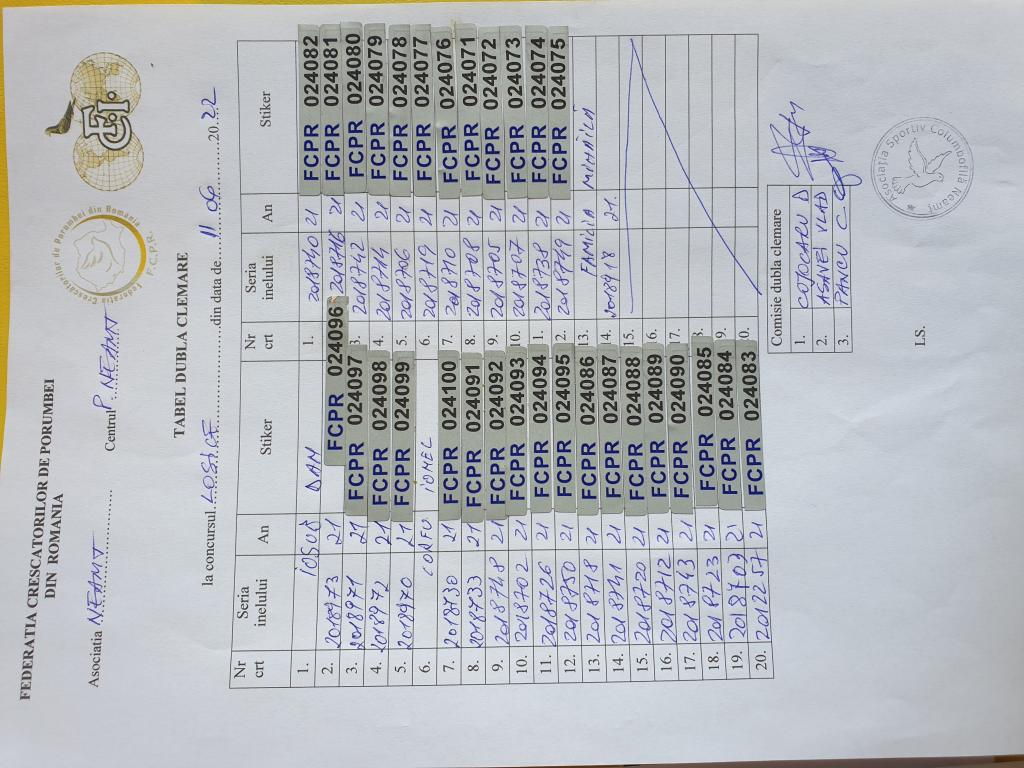 FEDERATIA CRESCATORILOR DE PORUMBEI
DIN ROMANIA
Federatia Crescatorilor de Porumbei din România
F.C.P.R.
Asociatia NEAMT Centrul P. NEAMT
TABEL DUBLA CLEMARE
la concursul LOSICE din data de 11 06 2022
Nr crt Seria inelului An Stiker Nr crt Seria inelului An Stiker
1. IOSUB DAN 1. 2018740 21 FCPR 024082
2. 2018973 21 FCPR 024096 2018746 21 FCPR 024081
3. 2018971 21 FCPR 024097 3. 2018742 21 FCPR 024080
4. 2018972 21 FCPR 024098 4. 2018714 21 FCPR 024079
5. 2018970 21 FCPR 024099 5. 2018706 21 FCPR 024078
6. IONEL 6. 2018719 21 FCPR 024077
7. 2018730 21 FCPR 024100 7. 2018710 21 FCPR 024076
8. 2018733 21 FCPR 024091 8. 2018708 21 FCPR 024071
9. 2018748 21 FCPR 024092 9. 2018705 21 FCPR 024072
10. 2018702 21 FCPR 024093 10. 2018707 21 FCPR 024073
11. 2018726 21 FCPR 024094 1. 2018739 21 FCPR 024074
12. 2018750 21 FCPR 024095 2. 2018749 21 FCPR 024075
13. 2018718 21 FCPR 024086 13. FAMILIA MIHĂILĂ
14. 2018741 21 FCPR 024087 14. 2018918 21.
15. 2018720 21 FCPR 024088 15.
16. 2018712 21 FCPR 024089 6.
17. 2018743 21 FCPR 024090 17.
18. 2018723 21 FCPR 024085 8.
19. 2018703 21 FCPR 024084 9.
20. 2012257 21 FCPR 024083 0.
Comisie dubla clemare
1. COJOCARU D
2. ASAVEI VLAD
3. PANCU C
L.S.
Asociația Sportiv Columbofilă Neamț